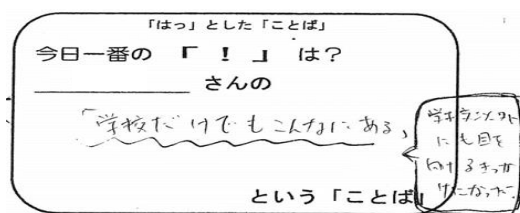 「はっ」とした「ことば」
今日一番の「！」は？
さんの
「学校だけでもこんなにある」
という「ことば」
にも目を
向けるきっか
けになった。